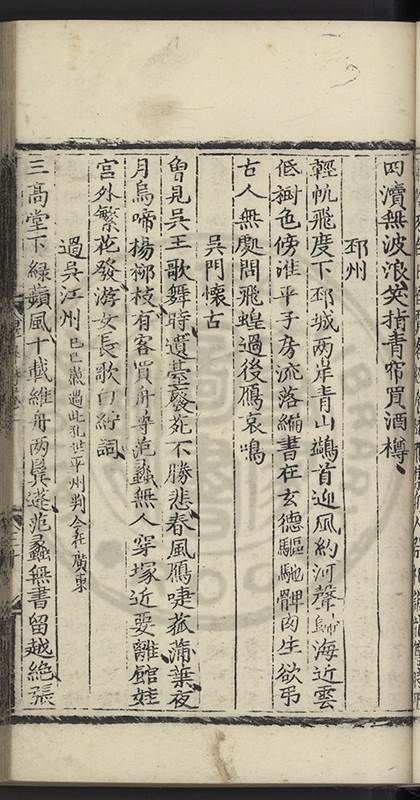 四瀆無波浪笑指青帘買酒樽
邳州
輕帆飛度下邳城两岸青山鷁首迎風約河聲歸海近雲
低樹色傍淮平子房流落編書在玄德驅馳髀肉生欲弔
古人無處問飛蝗過後鴈哀鳴
吳門懷古
曾見吳王歌舞時遺臺𮥼苑不勝悲春風鴈啑菰蒲葉夜
月烏啼楊柳枝有客買舟尋范蠡無人穿塚近要離館娃
宮外繁花發游女長歌白紵詞
過吳江州 己巳歲過此孔世平州判今在廣東
三高堂下綠蘋風十載維舟两鬂蓬范蠡無書留越絶張